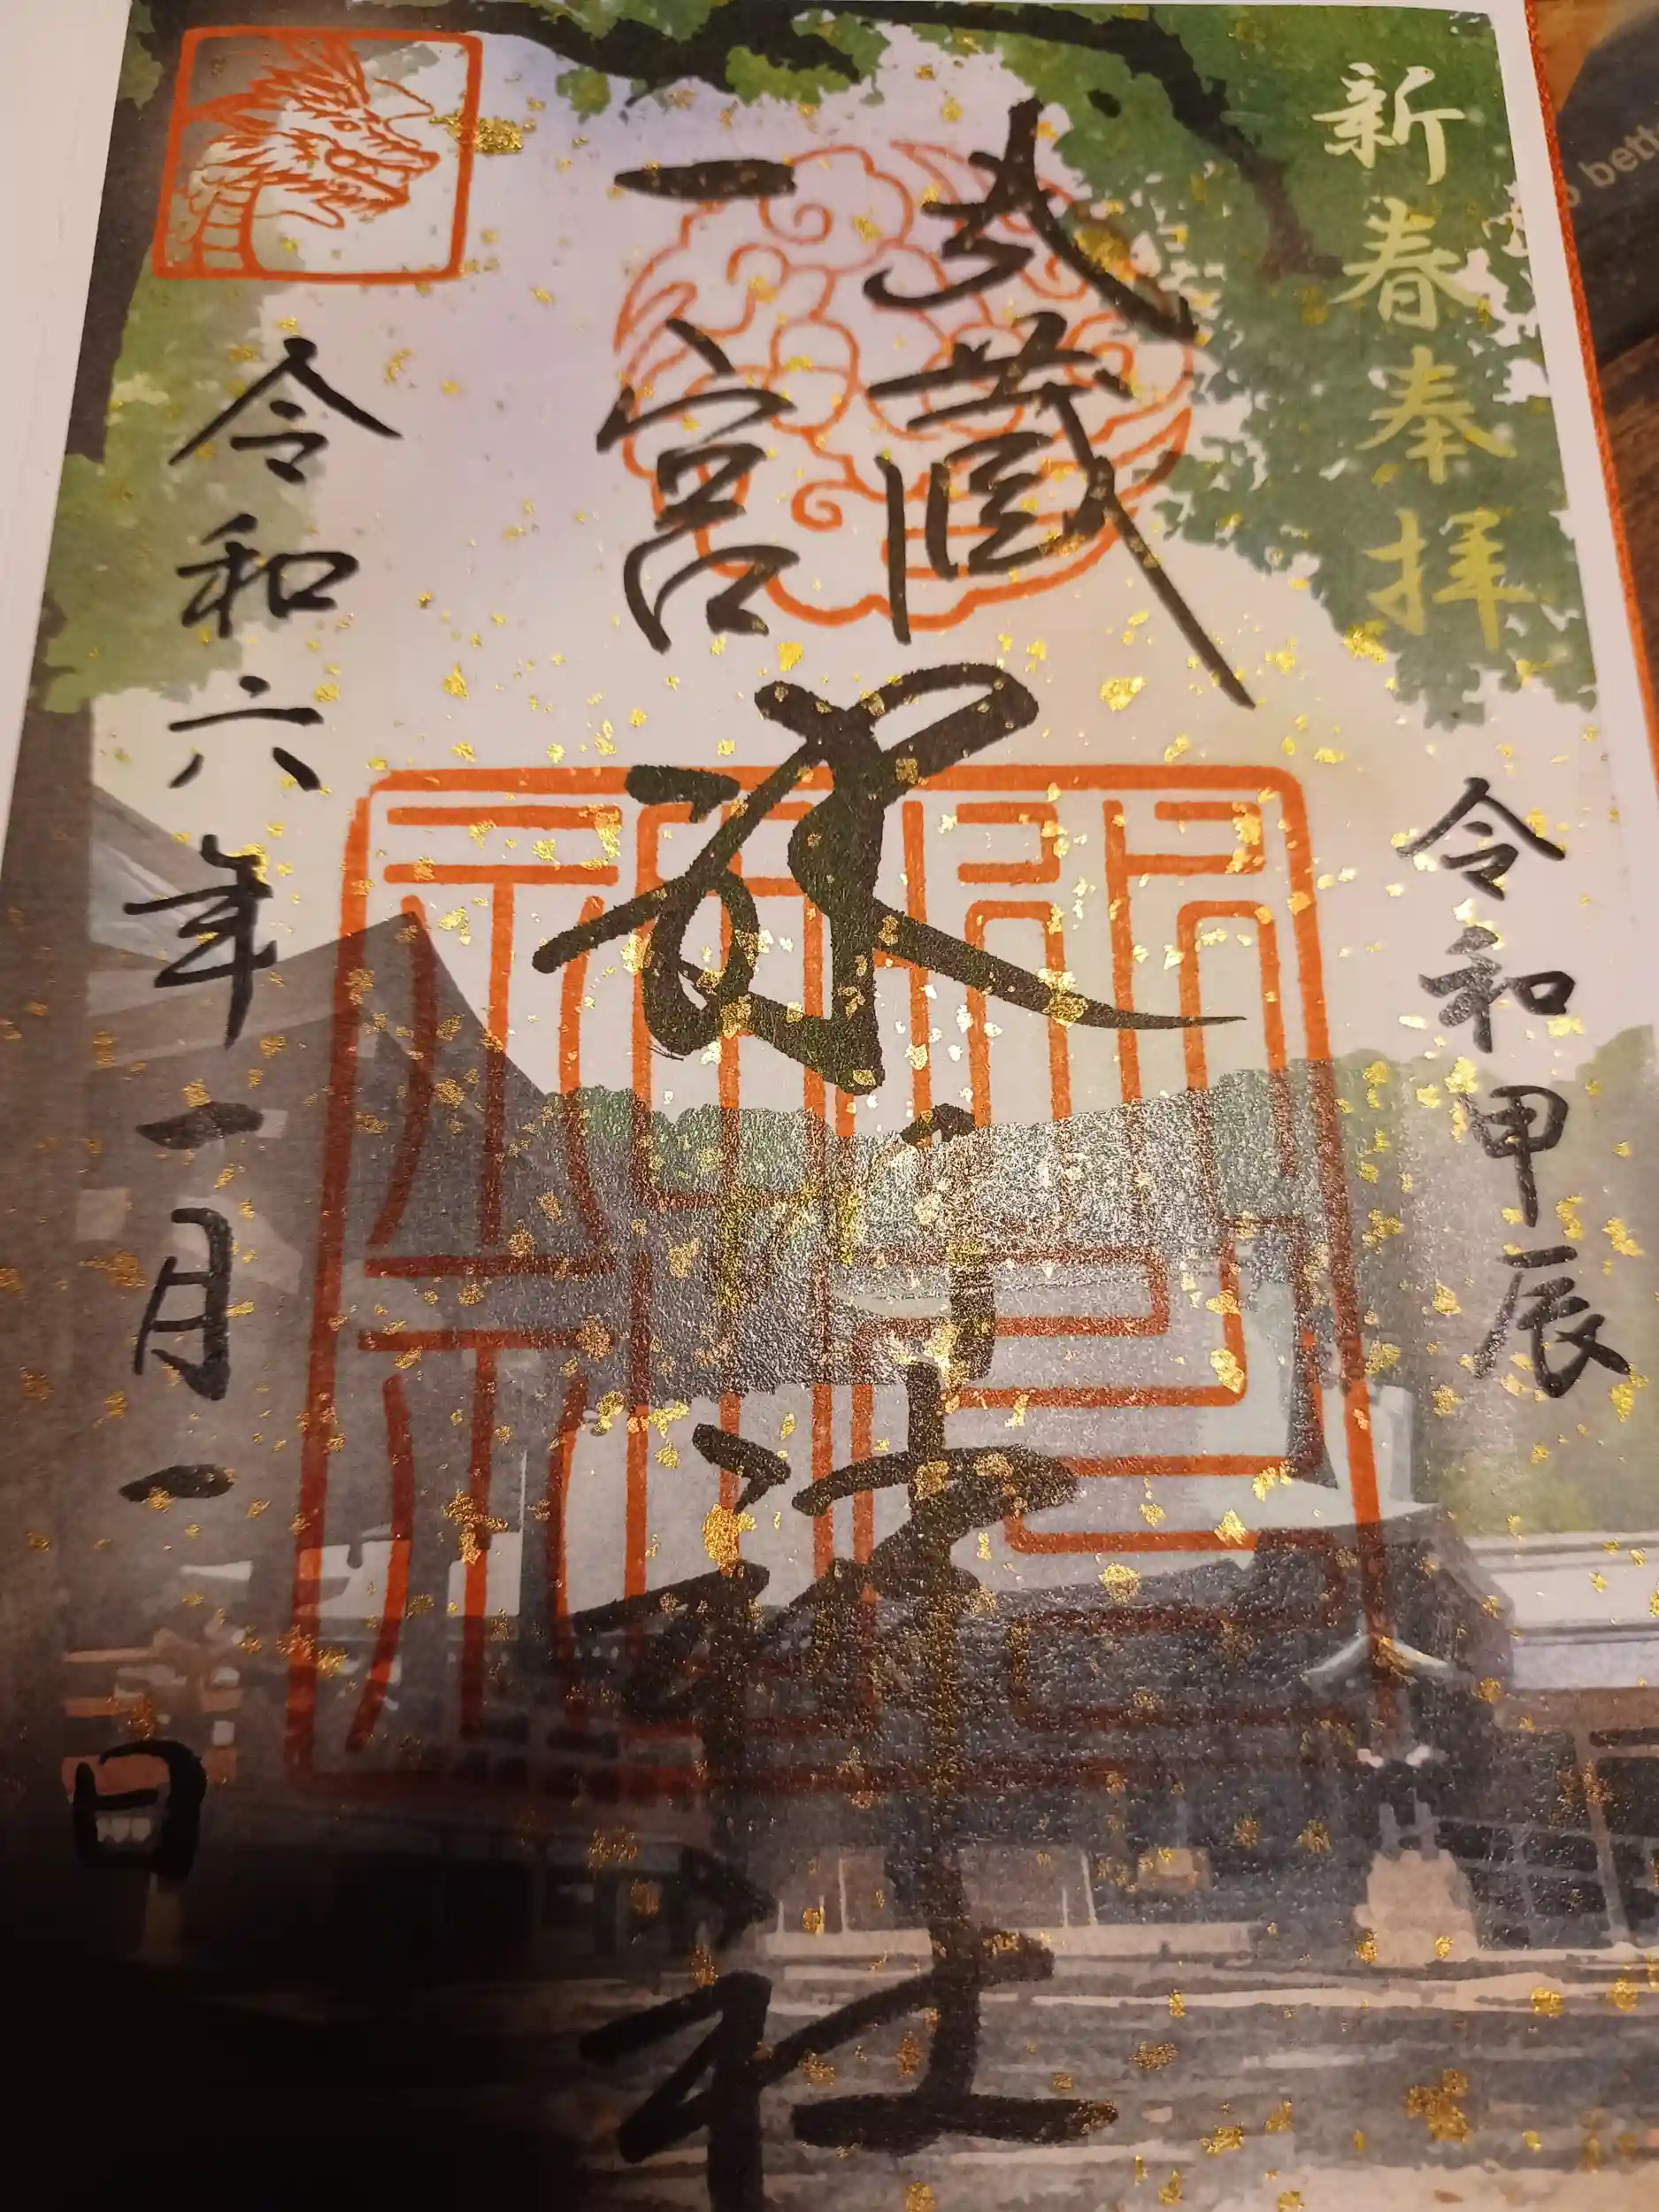 新春奉拝
令和甲辰
武蔵
一宮
神社
令和六年一月一日